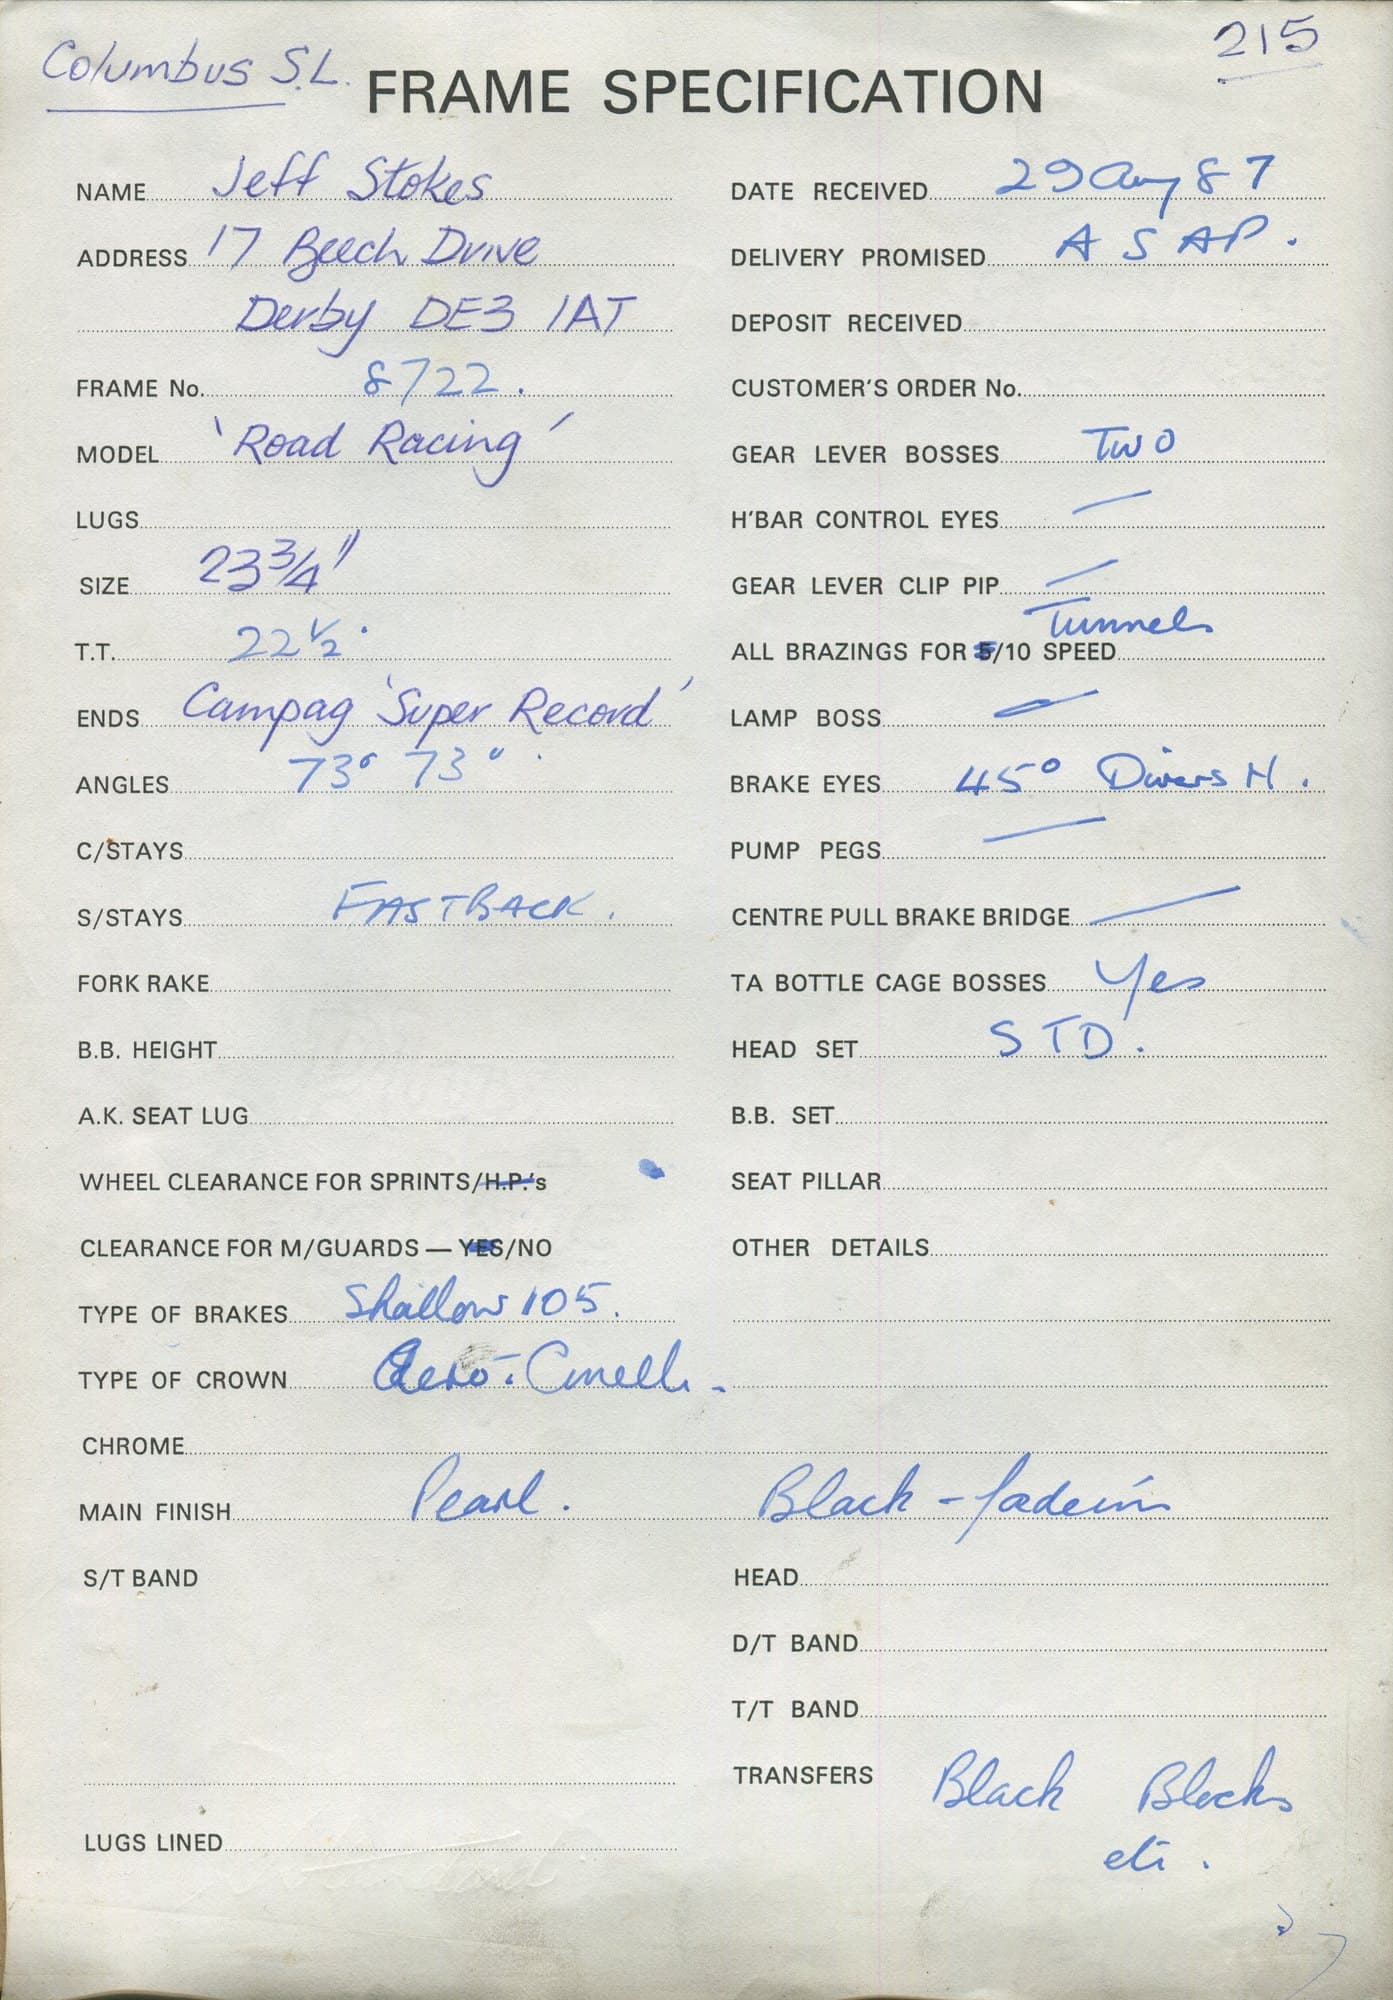 Columbus S.L.
215
FRAME SPECIFICATION
NAME Jeff Stokes
ADDRESS 17 Beech Drive
Derby DE3 1AT
FRAME No. 8722.
MODEL 'Road Racing'
LUGS
SIZE 23 3/4"
T.T. 22 1/2
ENDS Campag 'Super Record'
ANGLES 73° 73°
C/STAYS
S/STAYS FASTBACK.
FORK RAKE
B.B. HEIGHT
A.K. SEAT LUG
WHEEL CLEARANCE FOR SPRINTS/H.P.'s
CLEARANCE FOR M/GUARDS — YES/NO
TYPE OF BRAKES Shallow 105.
TYPE OF CROWN Aero. Cinelli
CHROME
MAIN FINISH Pearl. Black -
S/T BAND
LUGS LINED
DATE RECEIVED 29 Aug 87
DELIVERY PROMISED A S AP.
DEPOSIT RECEIVED
CUSTOMER'S ORDER No.
GEAR LEVER BOSSES TWO
H'BAR CONTROL EYES
GEAR LEVER CLIP PIP
Tunnels
ALL BRAZINGS FOR 5/10 SPEED
LAMP BOSS
BRAKE EYES 45°
PUMP PEGS
CENTRE PULL BRAKE BRIDGE
TA BOTTLE CAGE BOSSES Yes
HEAD SET STD.
B.B. SET
SEAT PILLAR
OTHER DETAILS
HEAD
D/T BAND
T/T BAND
TRANSFERS Black Blocks
etc.